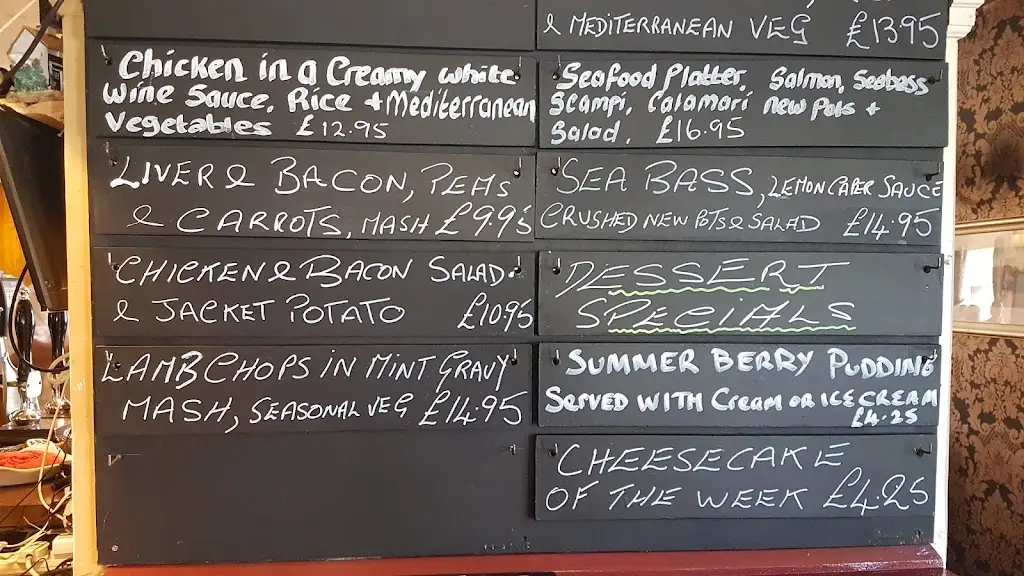 Chicken in a Creamy white
Wine Sauce, Rice + Mediterranean
Vegetables £12.95
LIVER & BACON, PEAS
& CARROTS, MASH £9.95
CHICKEN & BACON SALAD
& JACKET POTATO £10.95
LAMB CHOPS IN MINT GRAVY
MASH, SEASONAL VEG £14.95
& MEDITERRANEAN VEG £13.95
Seafood Platter, Salmon, Seabass
Scampi, Calamari New Pots +
Salad. £16.95
SEA BASS, LEMON CAPER SAUCE
CRUSHED NEW POTS & SALAD £14.95
DESSERT
SPECIALS
SUMMER BERRY PUDDING
Served WITH Cream OR ICE CREAM
£4.25
CHEESECAKE
OF THE WEEK £4.25